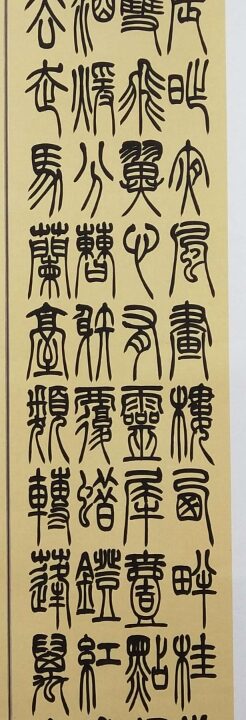 辰昨夜風畫樓西畔桂
雙飛翼心有靈犀壹點
酒煖分曹射覆蜡鐙紅
去走馬蘭臺類轉蓬鼠